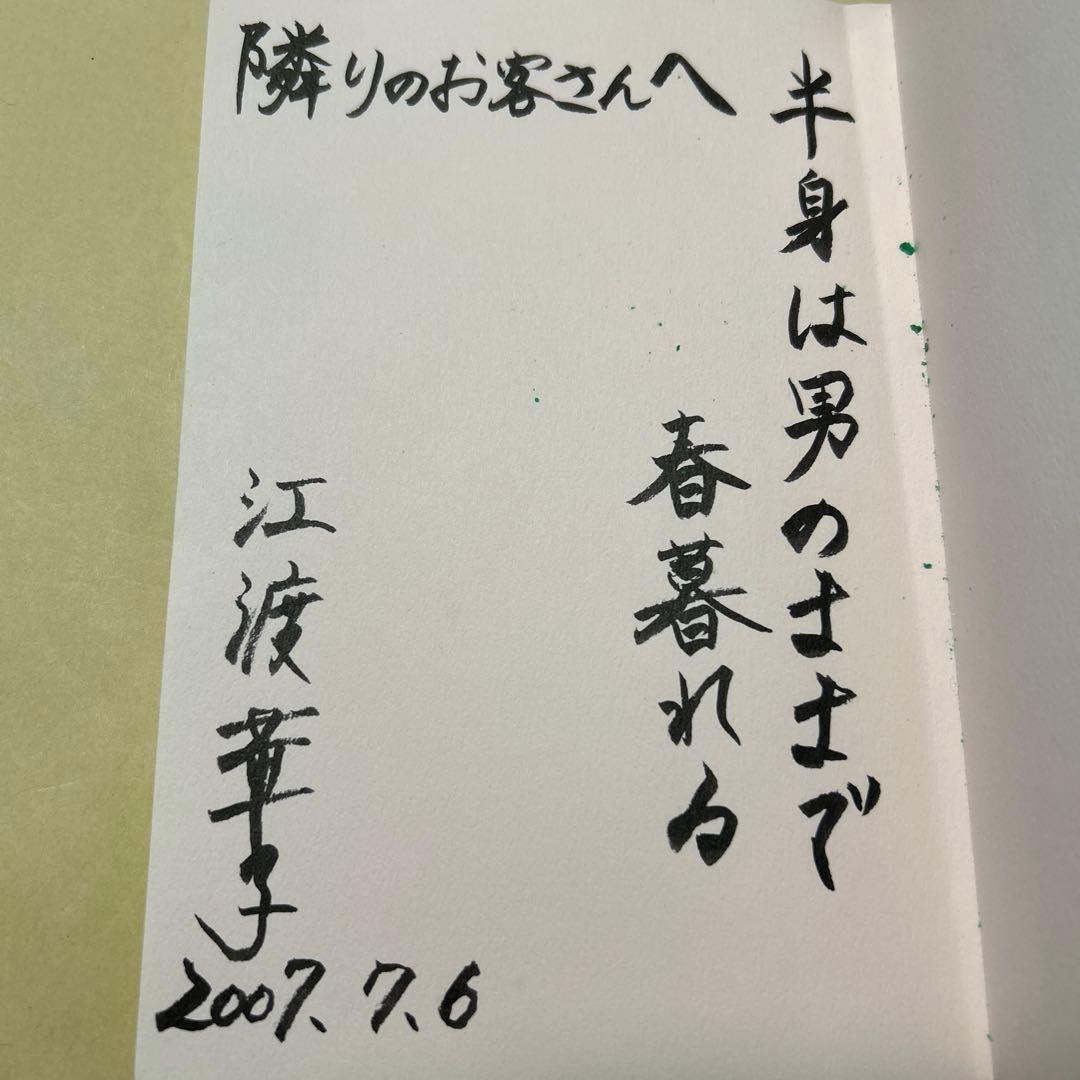 隣りのお客さんへ
半身は男のままで
春暮れる
江渡華子
2007.7.6